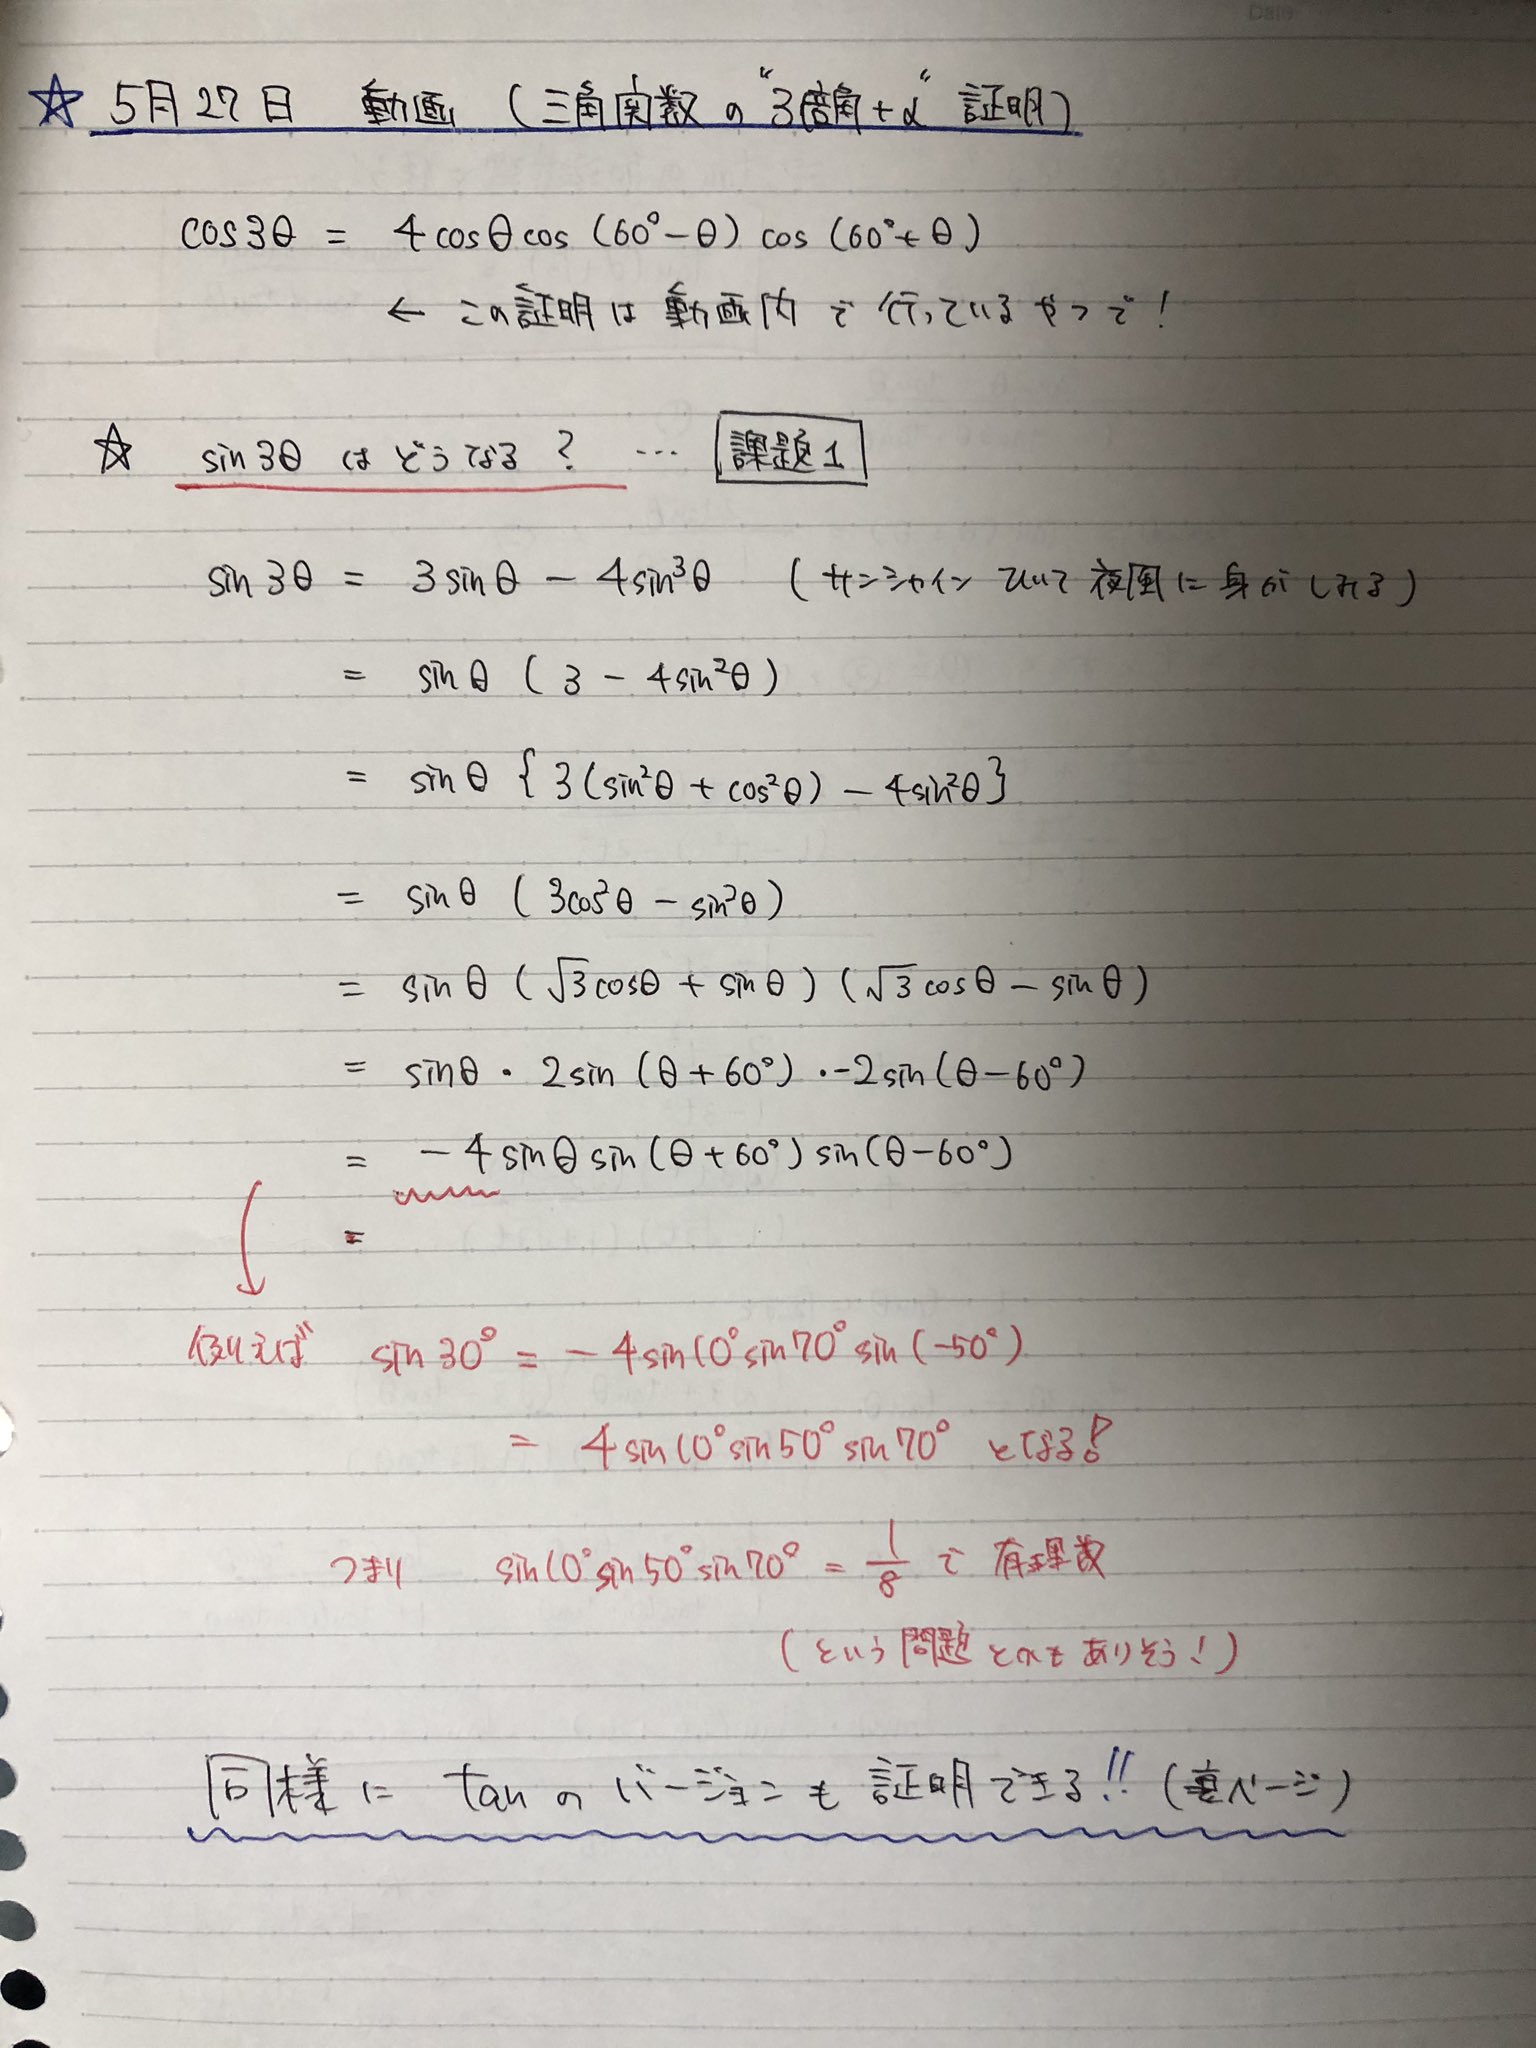 ☆ 5月27日 動画 (三角関数の"3倍角+α"証明)
cos3θ = 4cosθcos(60°-θ)cos(60°+θ)
← この証明は動画内で行っているやつで!
☆ sin3θはどうなる? … 課題1
sin3θ = 3sinθ - 4sin³θ (サンシャインひいて夜風に身がしみる)
= sinθ(3 - 4sin²θ)
= sinθ{3(sin²θ + cos²θ) - 4sin²θ}
= sinθ(3cos²θ - sin²θ)
= sinθ(√3cosθ + sinθ)(√3cosθ - sinθ)
= sinθ・2sin(θ+60°)・-2sin(θ-60°)
= -4sinθsin(θ+60°)sin(θ-60°)
=
例えば sin30° = -4sin10°sin70°sin(-50°)
= 4sin10°sin50°sin70° となる!
つまり sin10°sin50°sin70° = 1/8 で 有理数
(という問題とかもありそう!)
同様に tanのバージョンも証明できる!! (裏ページ)